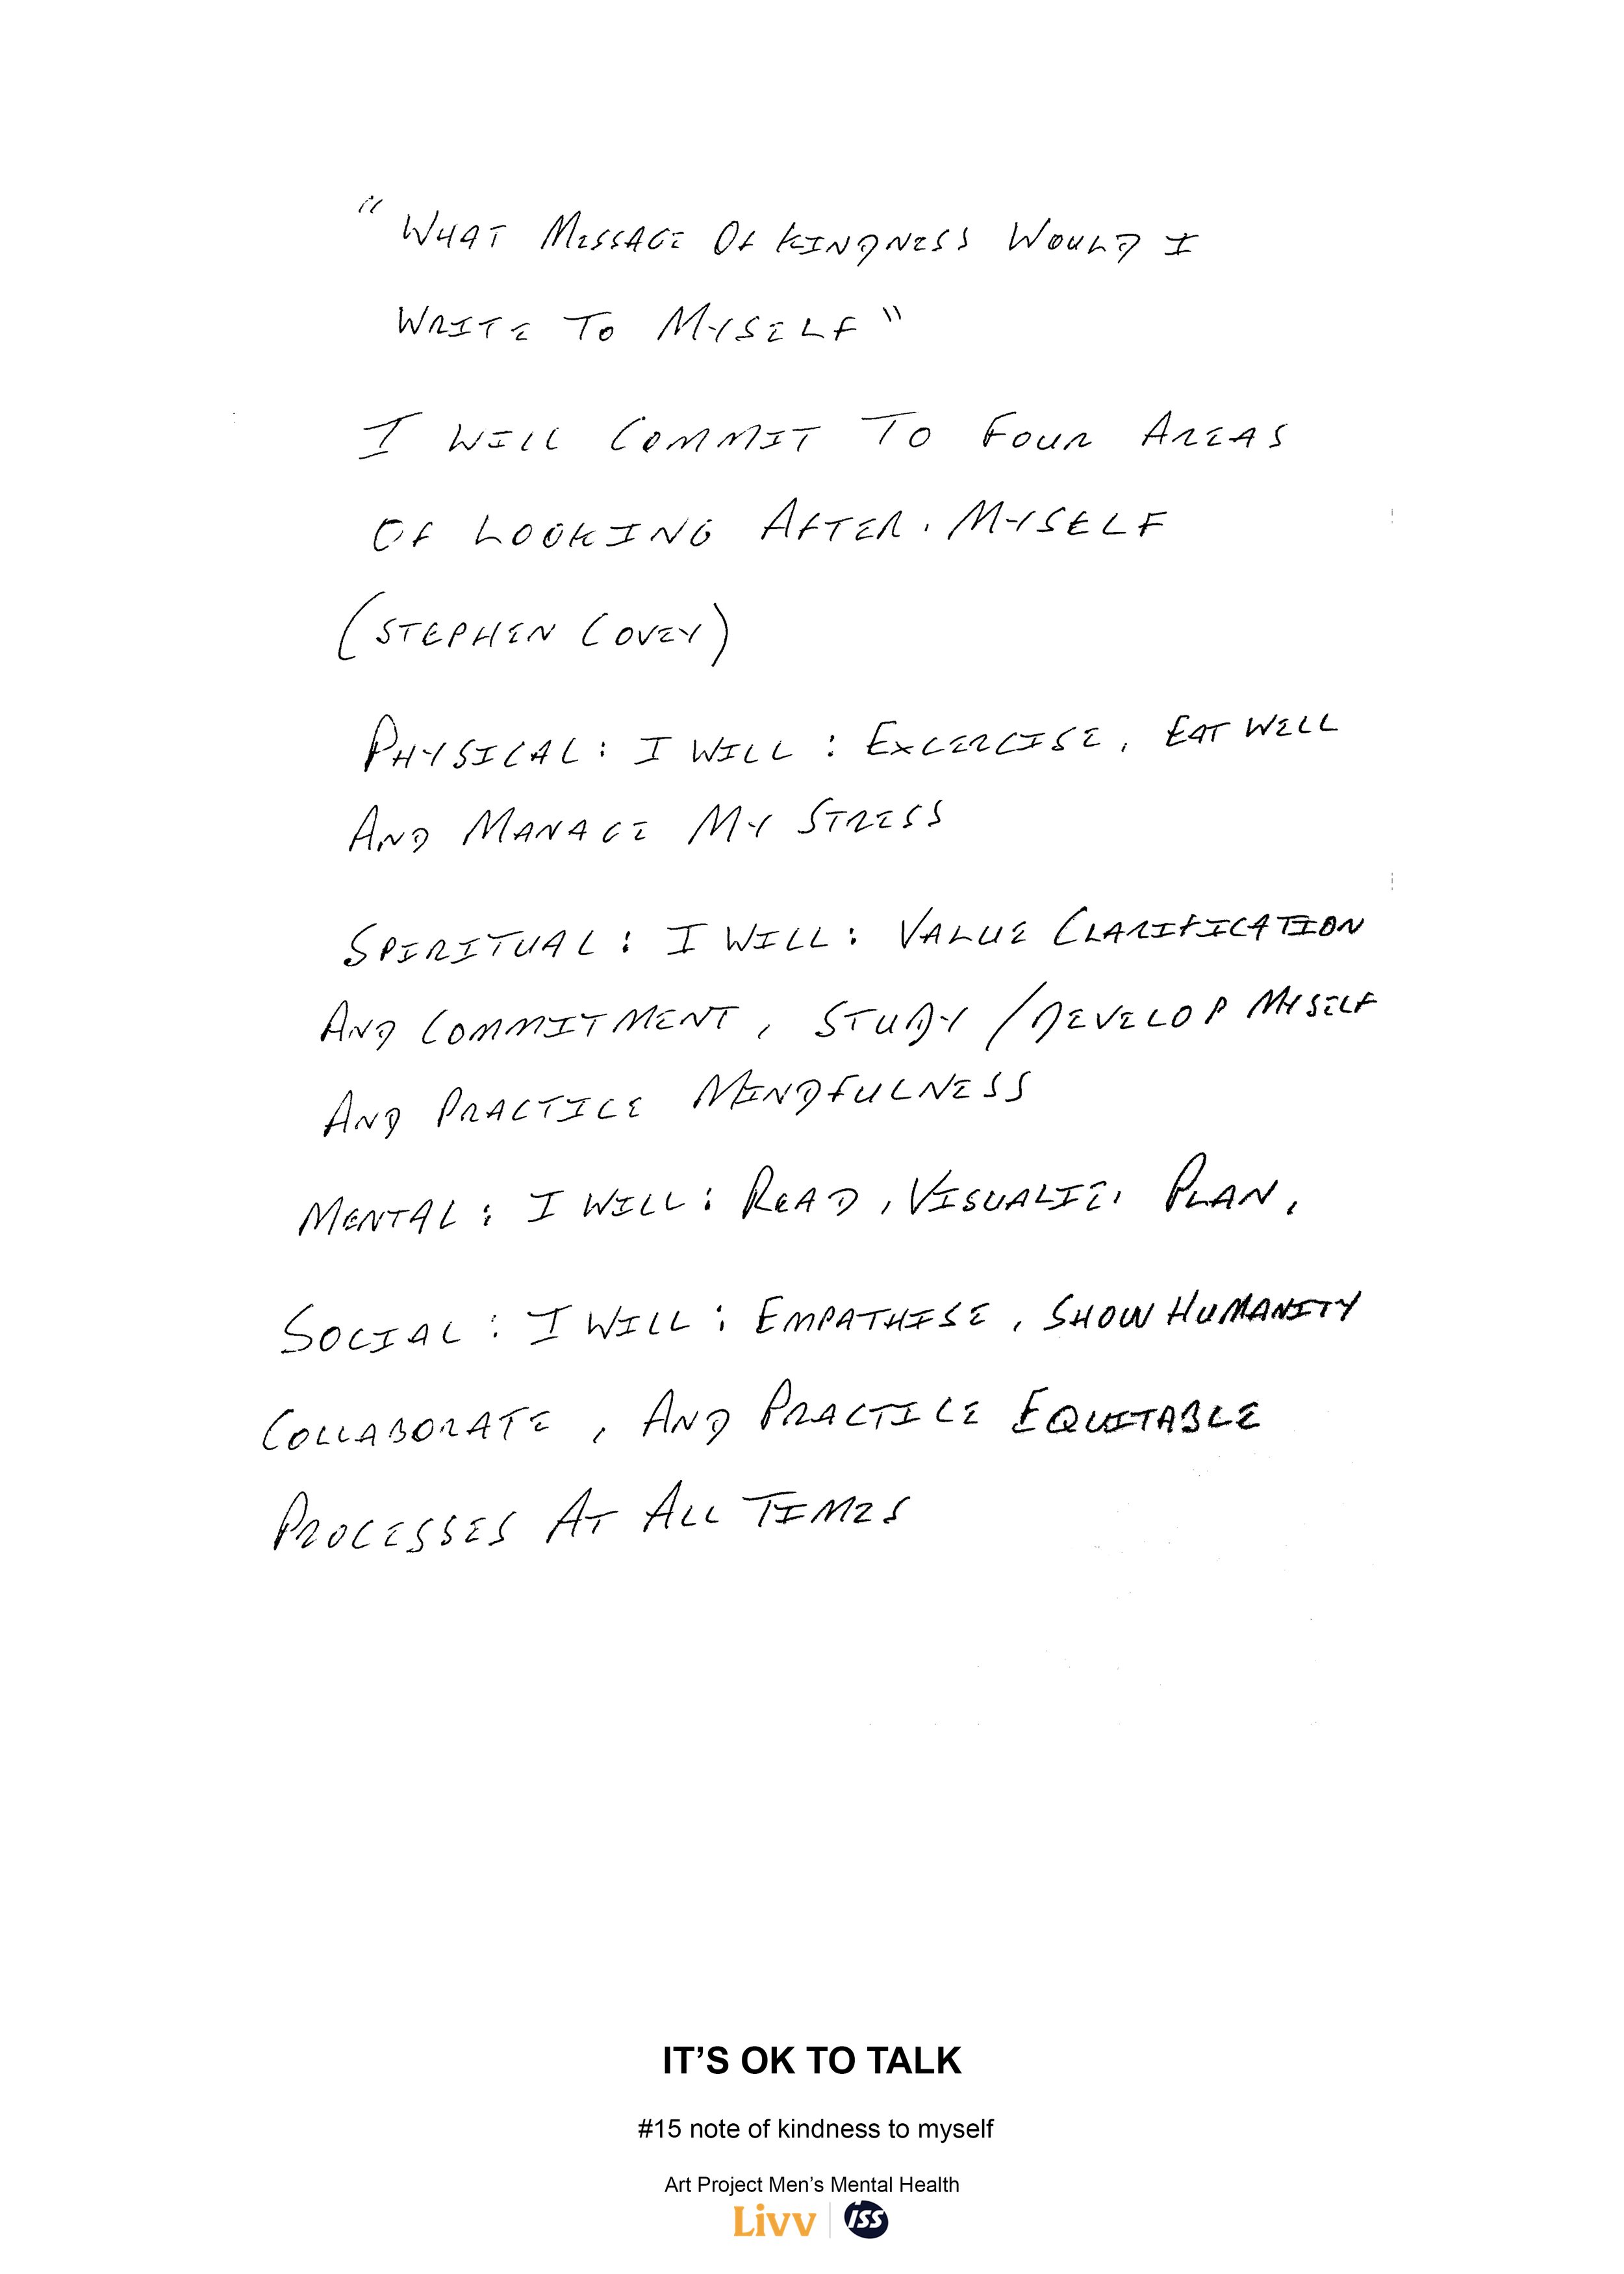 "WHAT MESSAGE OF KINDNESS WOULD I
WRITE TO MYSELF"
I WILL COMMIT TO FOUR AREAS
OF LOOKING AFTER. MYSELF
(STEPHEN COVEY)
PHYSICAL: I WILL: EXCERCISE, EAT WELL
AND MANAGE MY STRESS
SPIRITUAL: I WILL: VALUE CLARIFICATION
AND COMMITMENT, STUDY / DEVELOP MYSELF
AND PRACTICE MINDFULNESS
MENTAL: I WILL: READ, VISUALIZE, PLAN,
SOCIAL: I WILL: EMPATHISE, SHOW HUMANITY
COLLABORATE, AND PRACTICE EQUITABLE
PROCESSES AT ALL TIMES
IT'S OK TO TALK
#15 note of kindness to myself
Art Project Men's Mental Health
Livv ISS